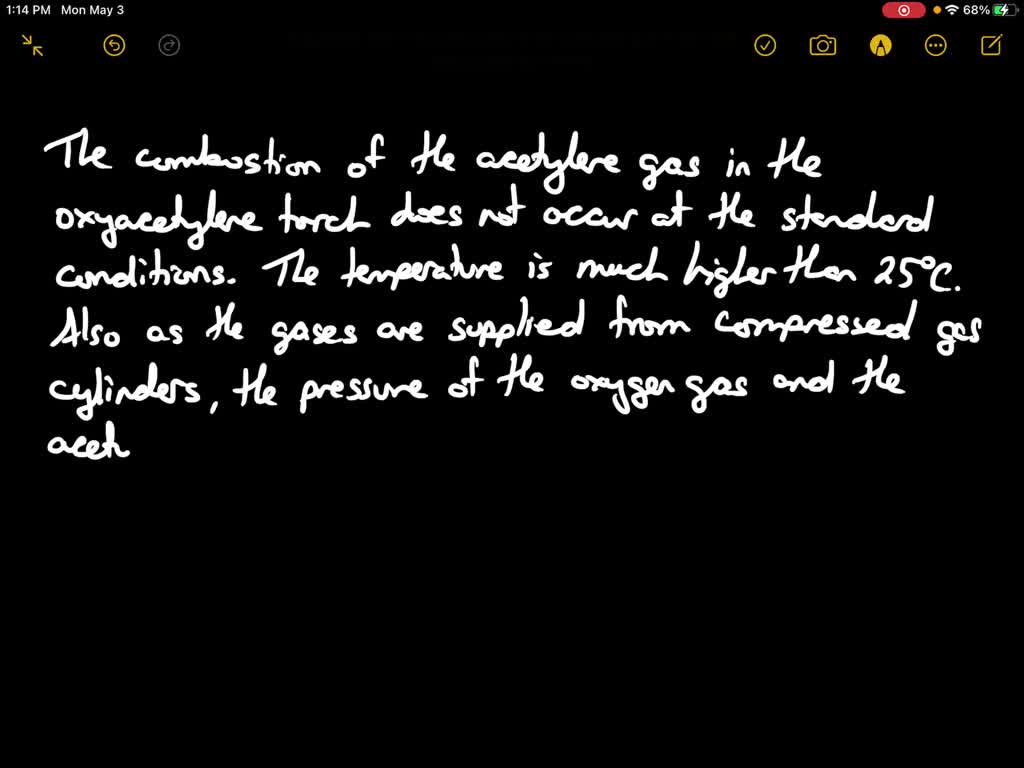 1:14 PM Mon May 3 68%
The combustion of the acetylene gas in the
oxyacetylene torch does not occur at the standard
conditions. The temperature is much higher than 25°C.
Also as the gases are supplied from compressed gas
cylinders, the pressure of the oxygen gas and the
acet